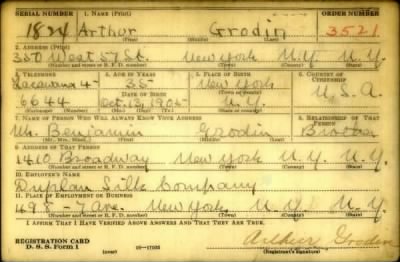 SERIAL NUMBER 1. NAME (Print) ORDER NUMBER
1824 Arthur Grodin 3521
(First) (Middle) (Last)
2. ADDRESS (Print)
350 West 57 St. New York N.Y. N.Y.
(Number and street or R. F. D. number) (Town) (County) (State)
3. TELEPHONE 4. AGE IN YEARS 5. PLACE OF BIRTH 6. COUNTRY OF CITIZENSHIP
Lacawana 4- 35 New York
6644 DATE OF BIRTH U.S.A.
Oct. 13, 1905 N.Y.
7. NAME OF PERSON WHO WILL ALWAYS KNOW YOUR ADDRESS 8. RELATIONSHIP OF THAT PERSON
Mr. Benjamin Grodin Brother
(Mr., Mrs., Miss) (First) (Middle) (Last)
9. ADDRESS OF THAT PERSON
1410 Broadway New York N.Y. N.Y.
(Number and street or R. F. D. number) (Town) (County) (State)
10. EMPLOYER'S NAME
Duplan Silk Company
11. PLACE OF EMPLOYMENT OR BUSINESS
498 - 7 Ave. New York N.Y. N.Y.
(Number and street or R. F. D. number) (Town) (County) (State)
I AFFIRM THAT I HAVE VERIFIED ABOVE ANSWERS AND THAT THEY ARE TRUE.
REGISTRATION CARD
D. S. S. Form 1 Arthur Grodin
(Registrant's signature)